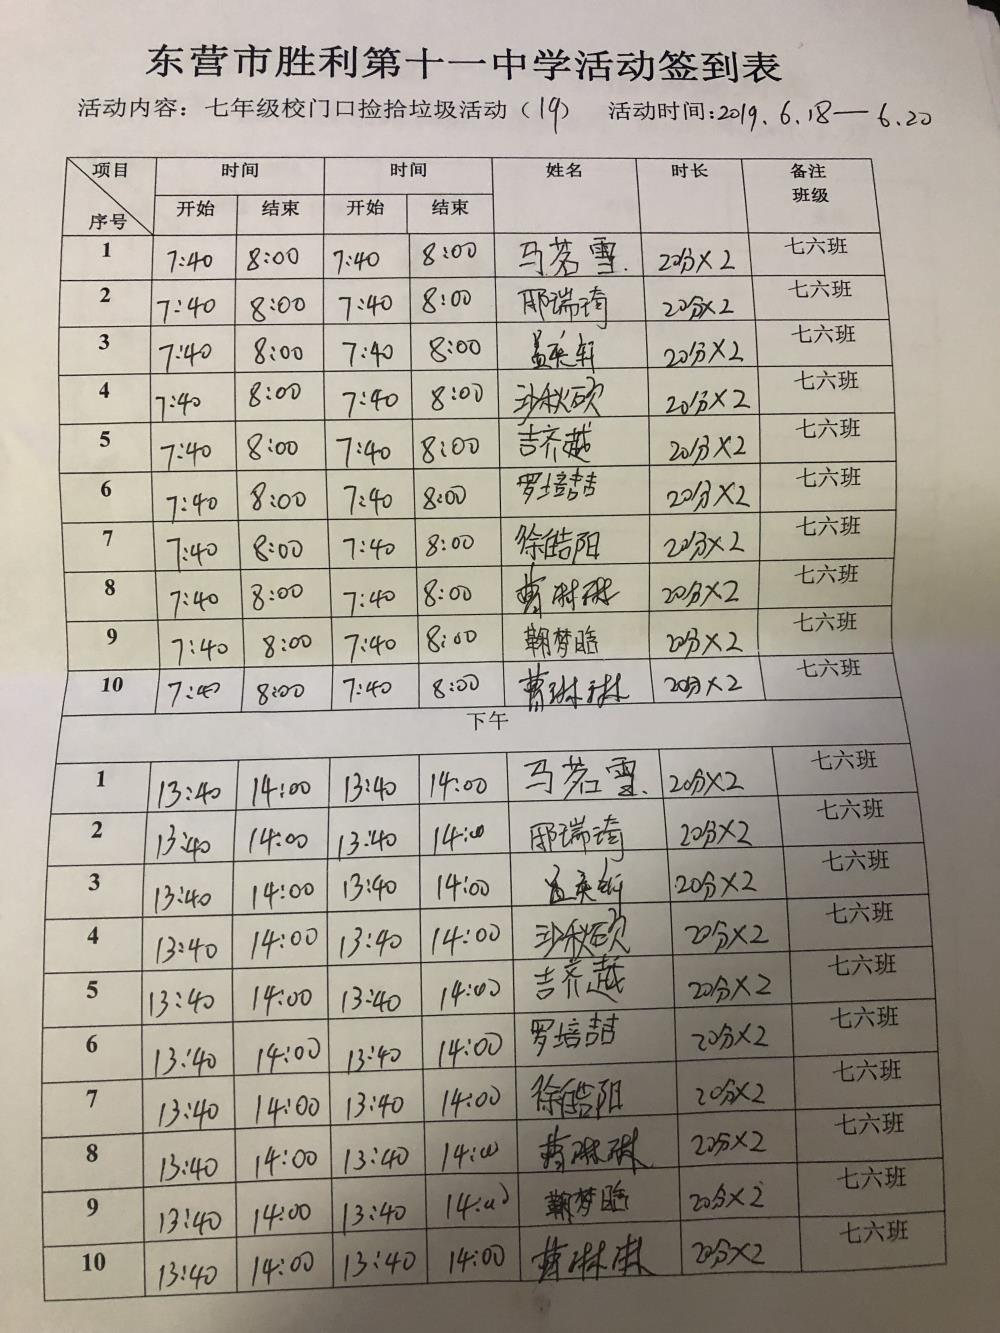 东营市胜利第十一中学活动签到表
活动内容：七年级校门口捡拾垃圾活动（19） 活动时间：2019.6.18—6.20
项目 时间 时间 姓名 时长 备注
班级
序号 开始 结束 开始 结束
1 7:40 8:00 7:40 8:00 马茗雪 20分×2 七六班
2 7:40 8:00 7:40 8:00 邢瑞琦 20分×2 七六班
3 7:40 8:00 7:40 8:00 20分×2 七六班
4 7:40 8:00 7:40 8:00 沙秋硕 20分×2 七六班
5 7:40 8:00 7:40 8:00 吉齐越 20分×2 七六班
6 7:40 8:00 7:40 8:00 罗培喆 20分×2 七六班
7 7:40 8:00 7:40 8:00 徐皓阳 20分×2 七六班
8 7:40 8:00 7:40 8:00 曹琳琳 20分×2 七六班
9 7:40 8:00 7:40 8:00 鞠梦晗 20分×2 七六班
10 7:40 8:00 7:40 8:00 曹琳琳 20分×2 七六班
下午
1 13:40 14:00 13:40 14:00 马茗雪 20分×2 七六班
2 13:40 14:00 13:40 14:00 邢瑞琦 20分×2 七六班
3 13:40 14:00 13:40 14:00 20分×2 七六班
4 13:40 14:00 13:40 14:00 沙秋硕 20分×2 七六班
5 13:40 14:00 13:40 14:00 吉齐越 20分×2 七六班
6 13:40 14:00 13:40 14:00 罗培喆 20分×2 七六班
7 13:40 14:00 13:40 14:00 徐皓阳 20分×2 七六班
8 13:40 14:00 13:40 14:00 曹琳琳 20分×2 七六班
9 13:40 14:00 13:40 14:00 鞠梦晗 20分×2 七六班
10 13:40 14:00 13:40 14:00 曹琳琳 20分×2 七六班